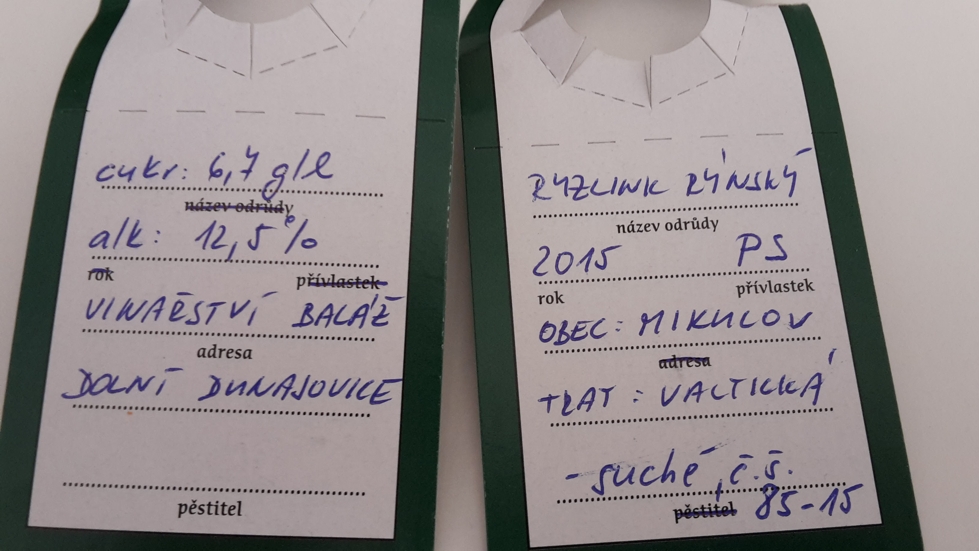 cukr: 6,7 g/l
název odrůdy
alk: 12,5%
rok přívlastek
VINAŘSTVÍ BALÁŽ
adresa
DOLNÍ DUNAJOVICE
pěstitel
RYZLINK RÝNSKÝ
název odrůdy
2015 PS
rok přívlastek
OBEC: MIKULOV
adresa
TRAŤ: VALTICKÁ
- suché, č.š.
pěstitel 85-15